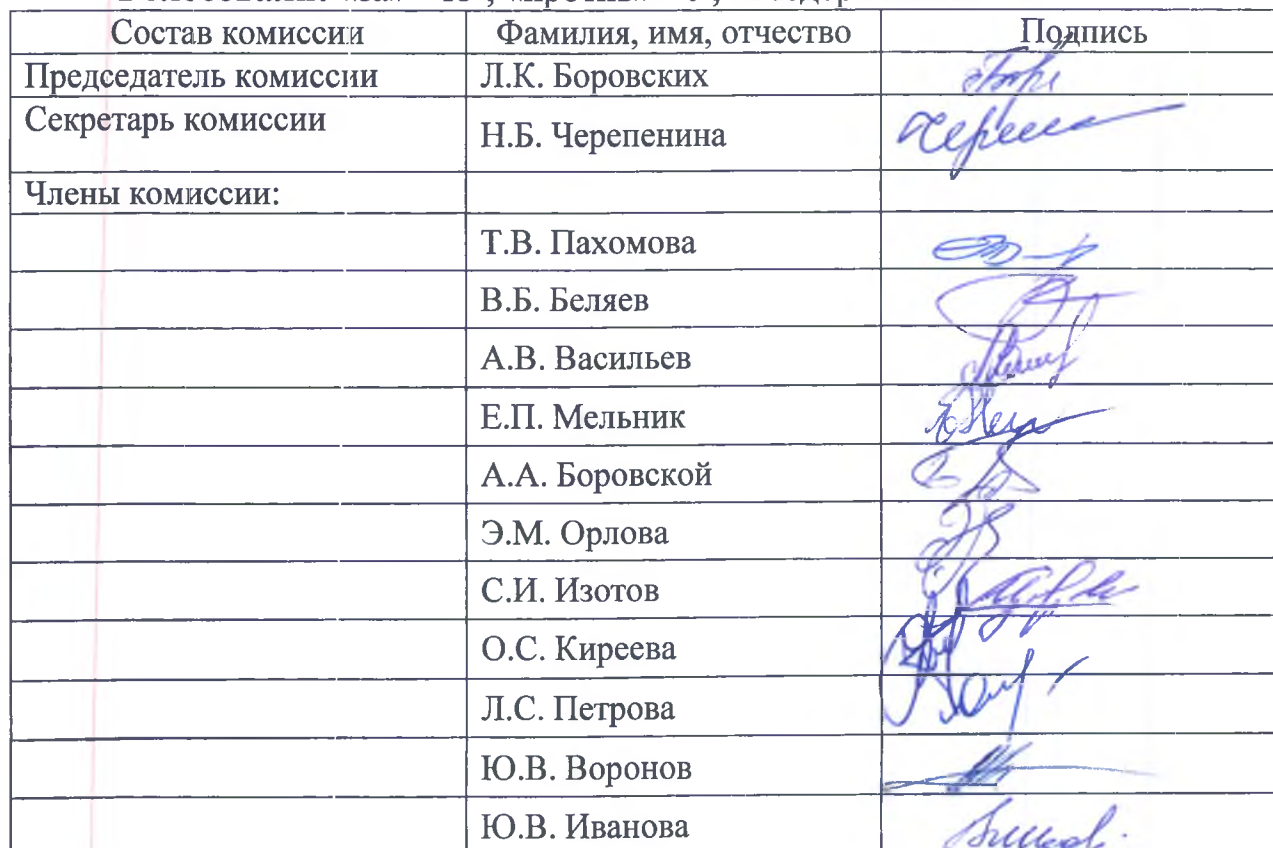 Состав комиссии Фамилия, имя, отчество Подпись
Председатель комиссии Л.К. Боровских
Секретарь комиссии Н.Б. Черепенина
Члены комиссии:
Т.В. Пахомова
В.Б. Беляев
А.В. Васильев
Е.П. Мельник
А.А. Боровской
Э.М. Орлова
С.И. Изотов
О.С. Киреева
Л.С. Петрова
Ю.В. Воронов
Ю.В. Иванова